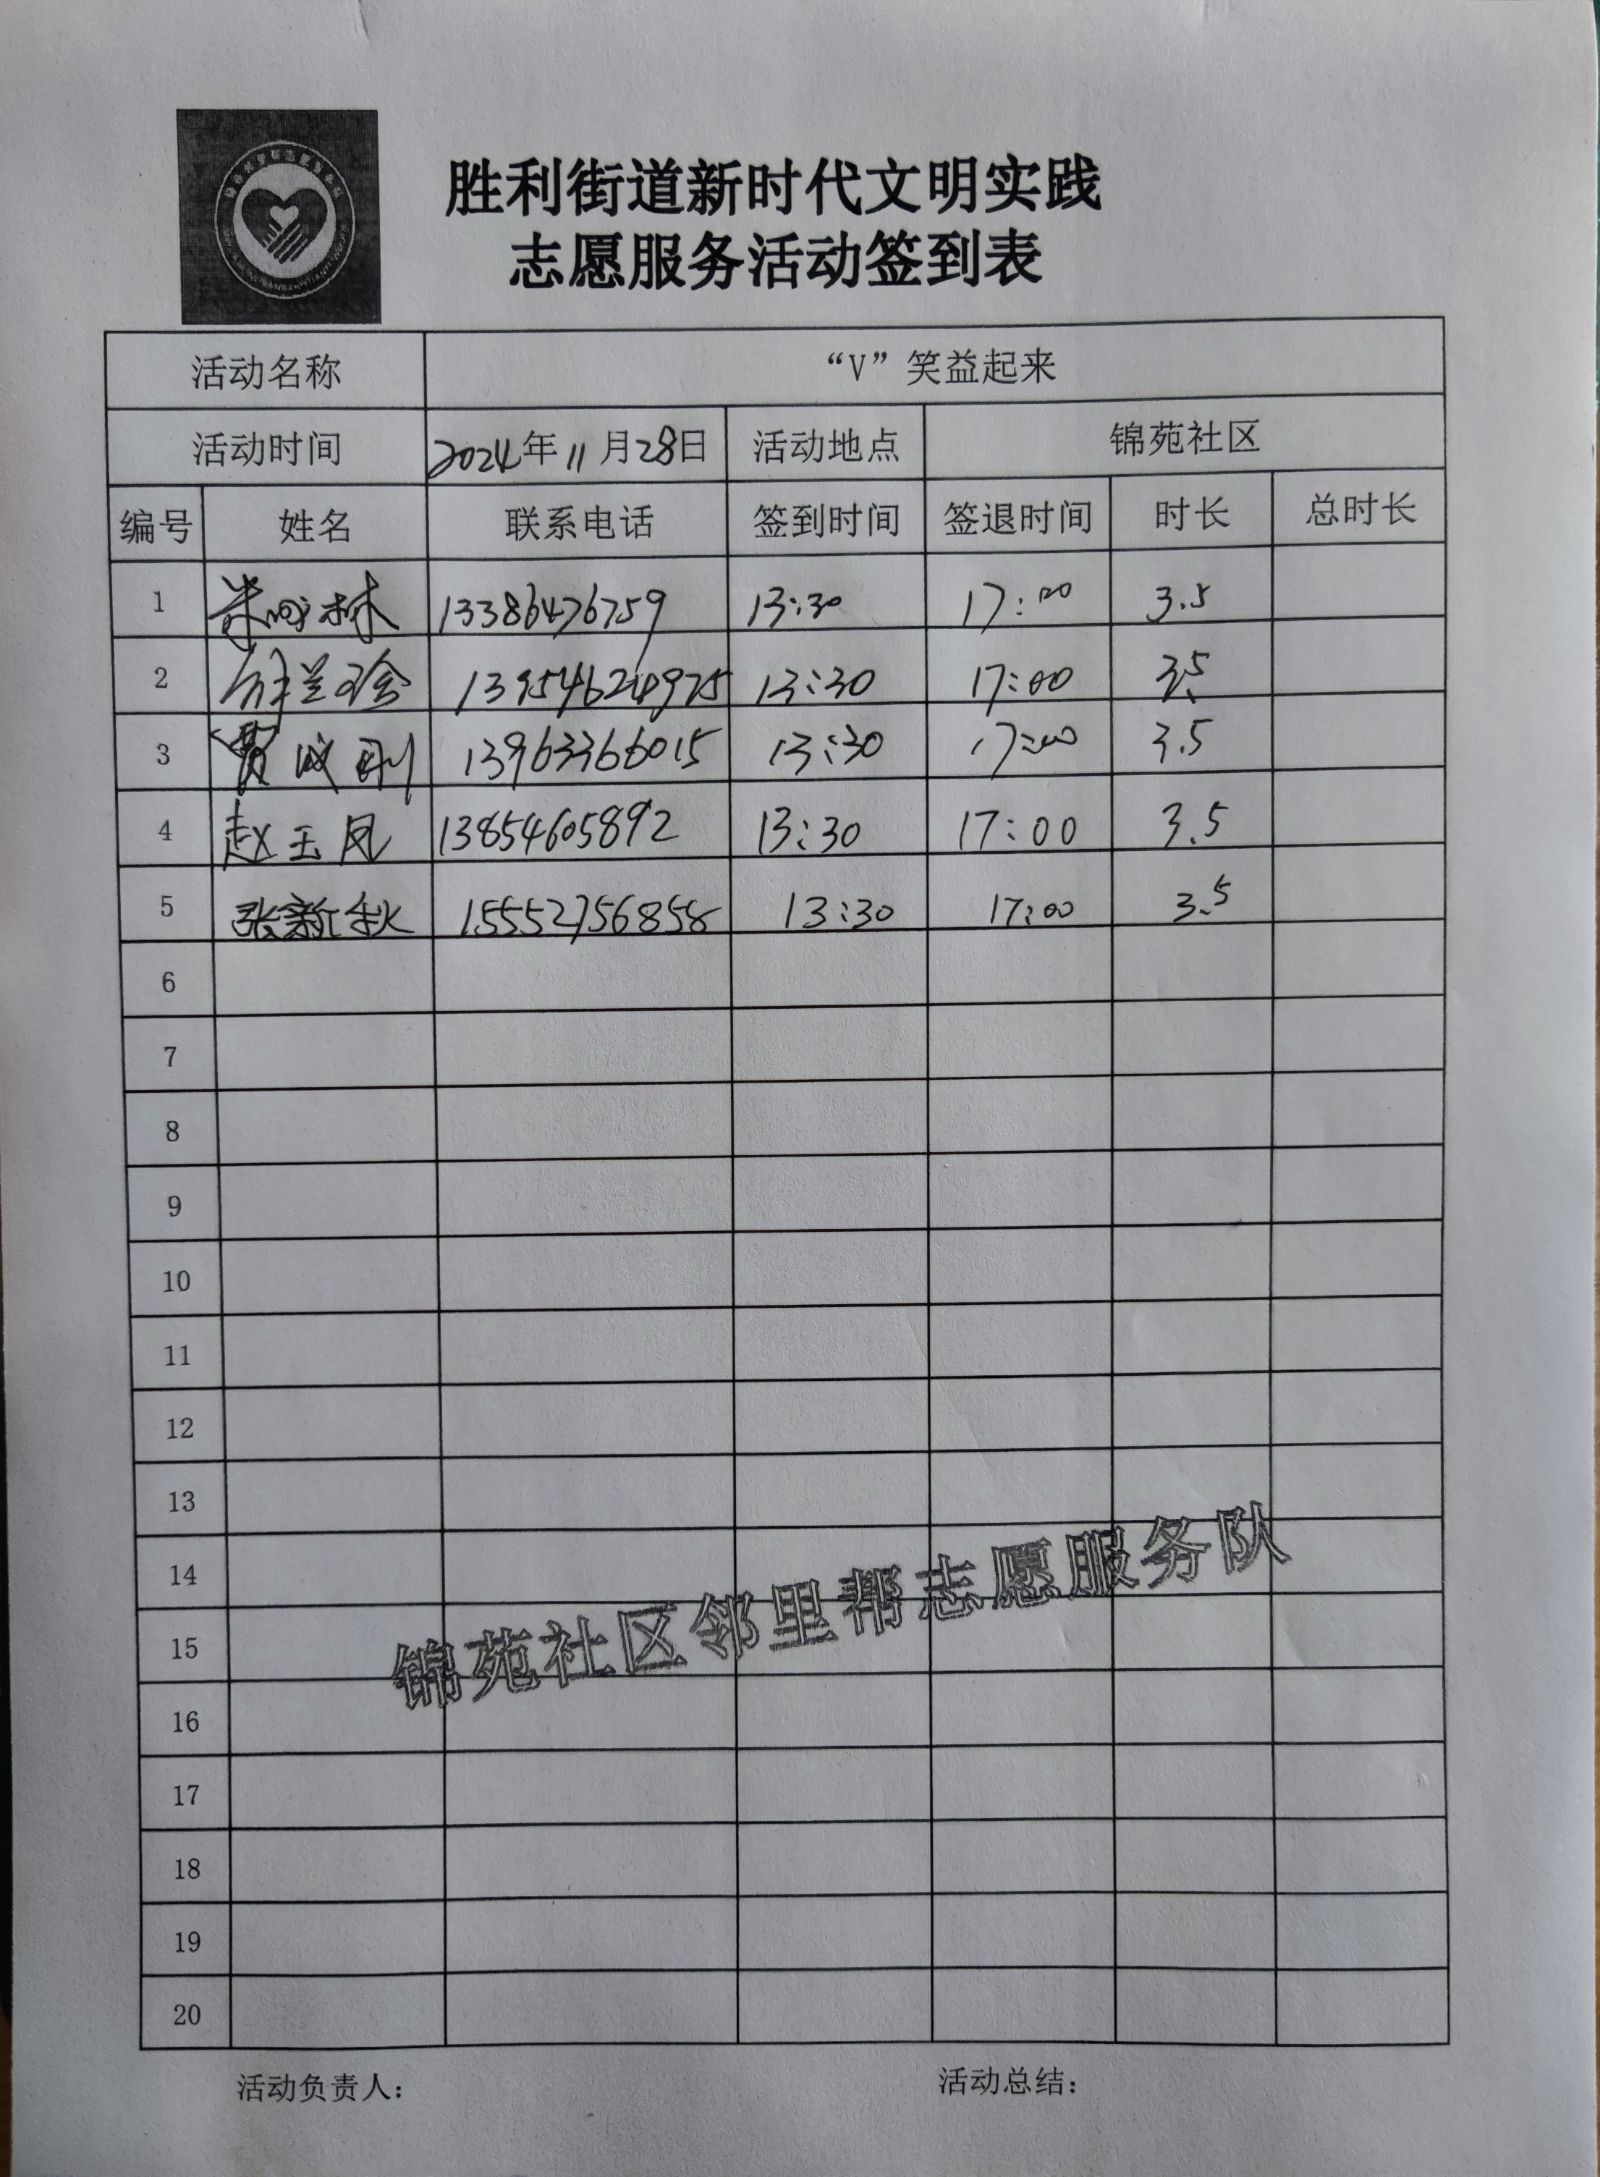 胜利街道新时代文明实践
志愿服务活动签到表
活动名称 “V”笑益起来
活动时间 2024年11月28日 活动地点 锦苑社区
编号 姓名 联系电话 签到时间 签退时间 时长 总时长
1 13386476759 13:30 17:00 3.5
2 13954624975 13:30 17:00 3.5
3 贾成刚 13963366015 13:30 17:00 3.5
4 赵玉凤 13854605892 13:30 17:00 3.5
5 张新秋 15552756858 13:30 17:00 3.5
6
7
8
9
10
11
12
13
14
15
锦苑社区邻里帮志愿服务队
16
17
18
19
20
活动负责人： 活动总结：